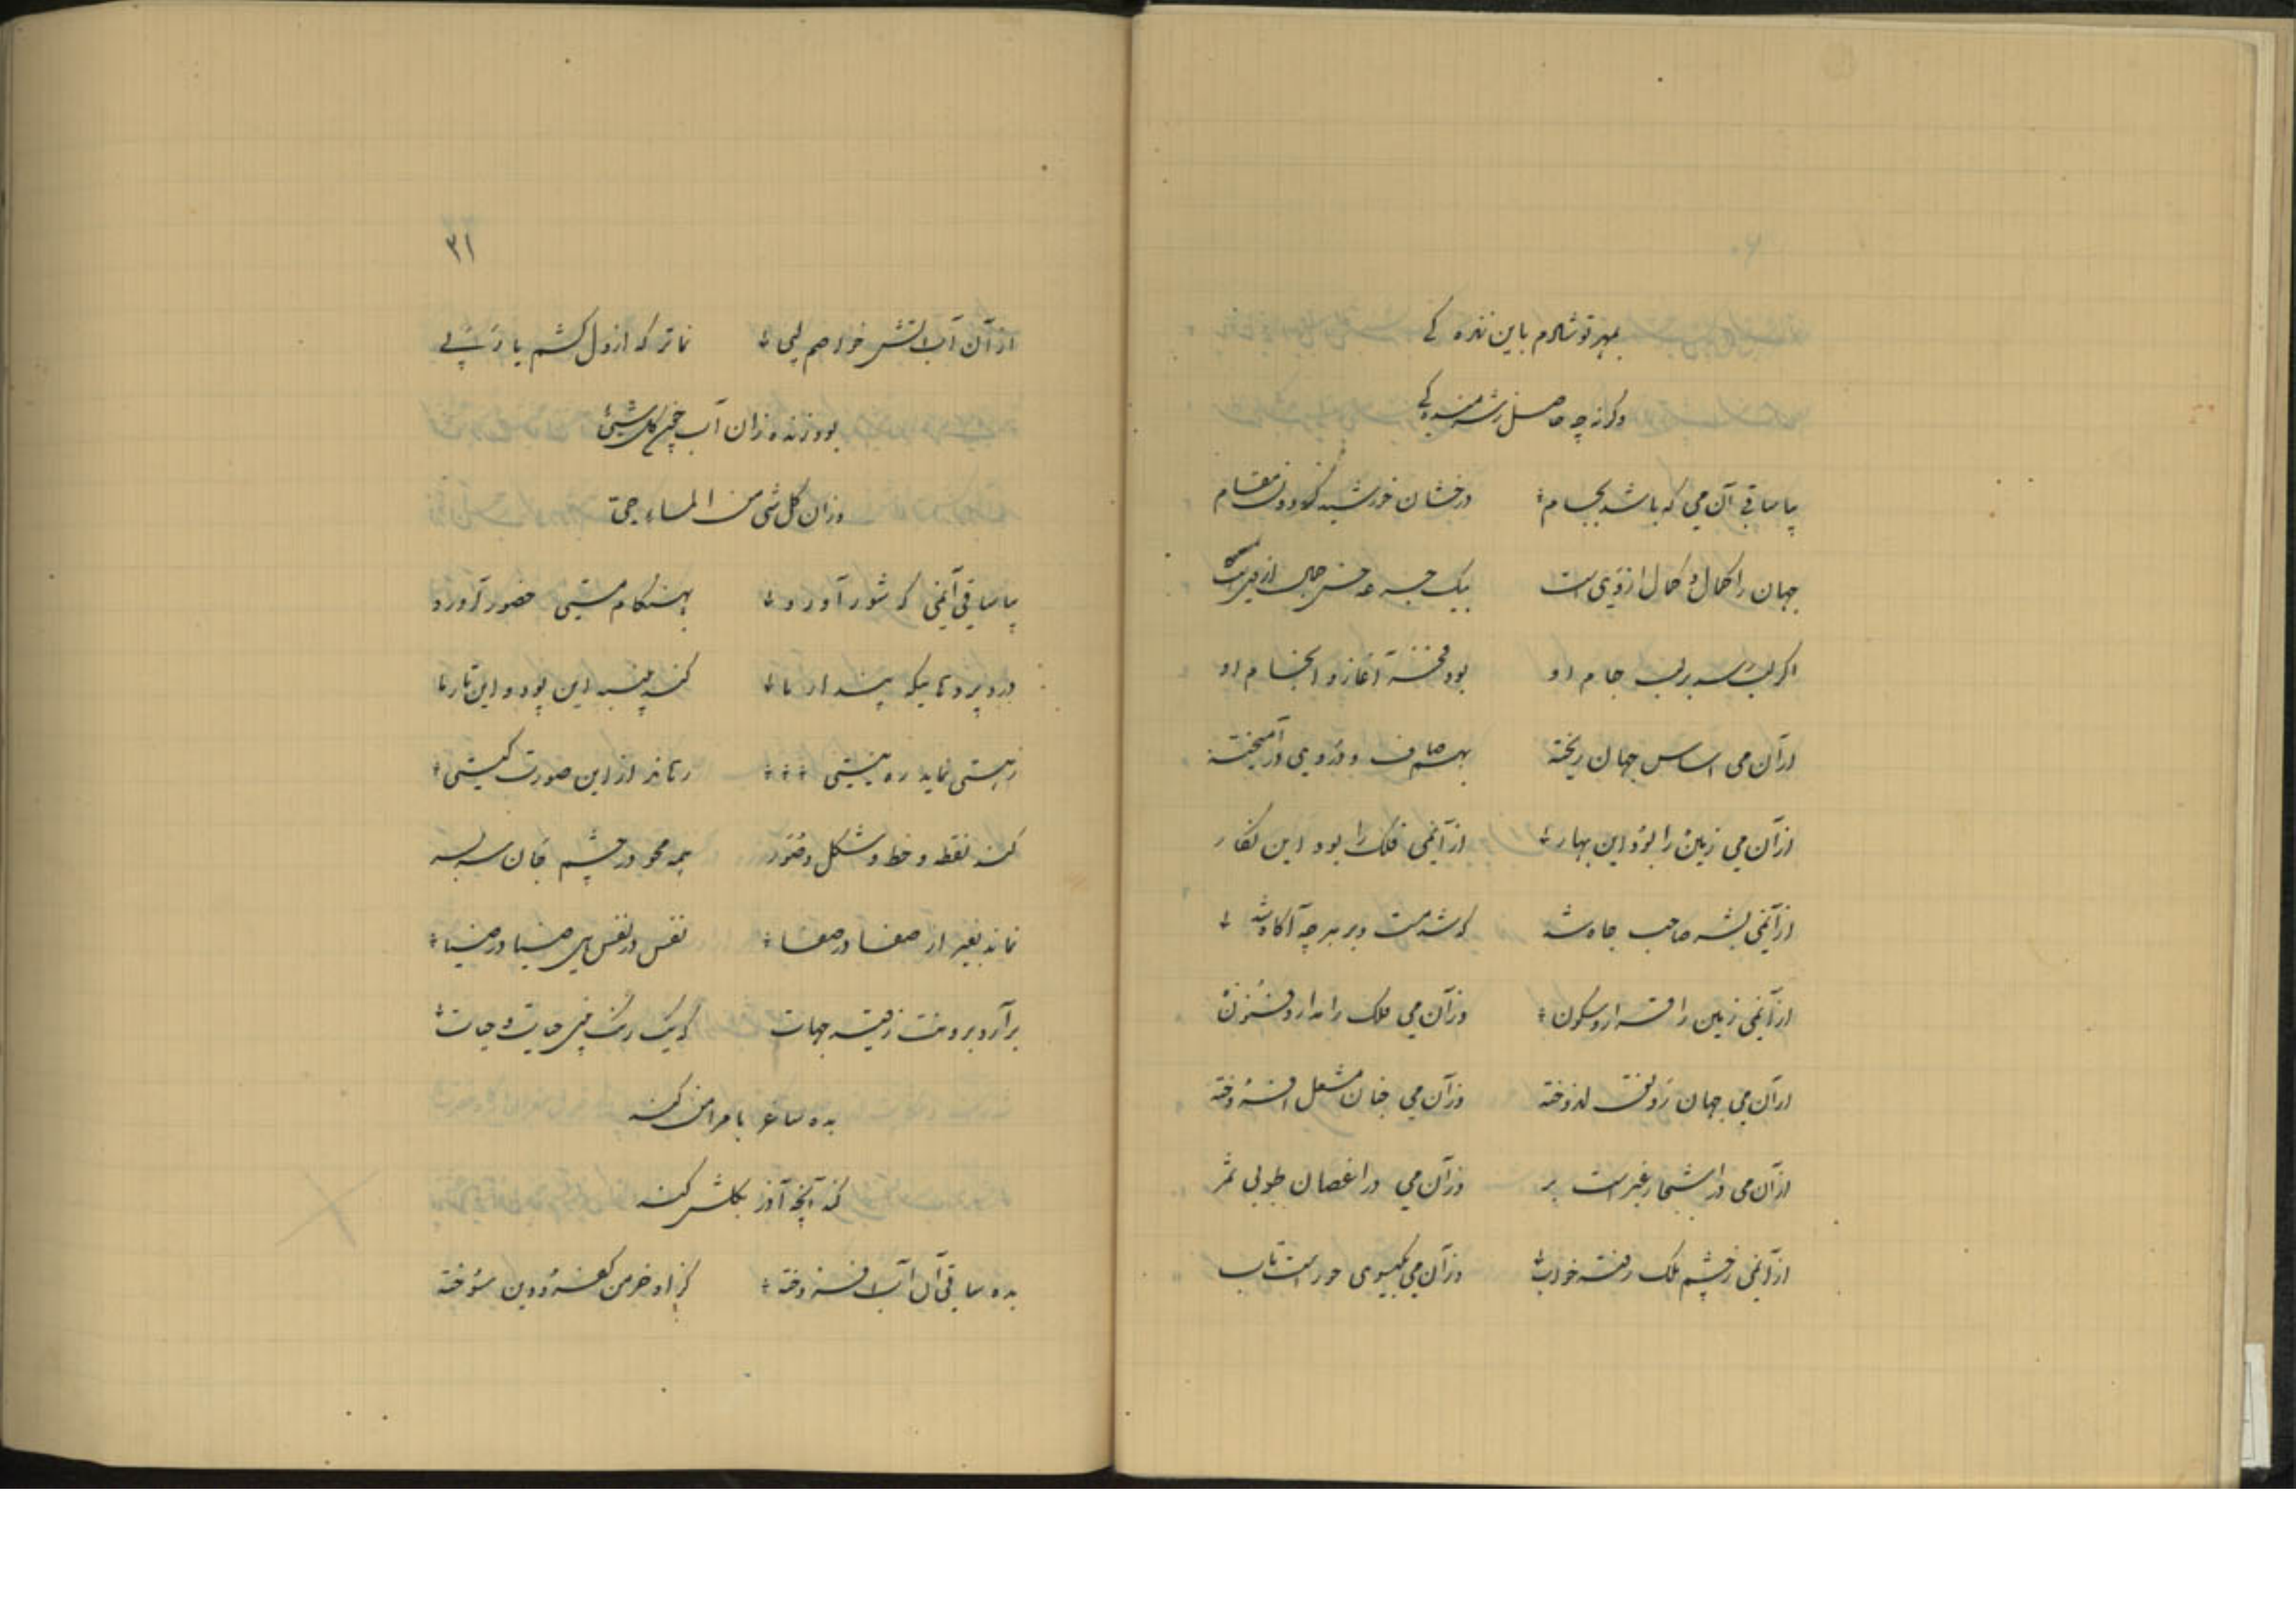 بمهر تو شادم باین زنده کی
وگرنه چه حاصل ز شرمنده کی
بیا ساقی آن می که باشد بجام
درخشان خورشید گردون مقام
جهان را کمال و کمال از وی است
بیک جرعه
اگر لب رسد بر لب جام او
بود آغاز و انجام او
از آن می اساس جهان ریخته
بهم صاف و دردی در آمیخته
از آن می زمین را بود این بهار
از آنمی فلک را بود این نگار
از آنمی بشر صاحب جاه شد
که شد مست و بر هر چه آگاه شد
از آنمی زمین را قرار و سکون
وزآن می فلک را مدار و فنون
از آن می جهان رونق اندوخته
وزآن می جنان مشعل افروخته
از آن می در اشجار بر
وزآن می در اغصان طوبی ثمر
از آنمی ز چشم ملک رفته خواب
وزآن می بگیسوی حور است تاب
۳۱
از آن آب آتش خواهم لبی
نماتر که از دل کشم یا رَبَی
بود زنده زان آب چون کل شیئی
وزان کل شی من الماء حی
بیا ساقی آنمی که شور آورد
بهنگام مستی حضور آورد
درد پرده تا یکه پندار ما
کند پنبه این پود و این تار ما
ز هستی نماید ره نیستی
رهاند از این صورت کیستی
کند نقطه و خط و شکل و صور
همه محو در چشم جان سر بسر
نماند بغیر از صفا در صفا
نفس در نفس بین ضیا در ضیا
برآرد برونت ز قید جهات
که یک رنگ بینی حیات و ممات
بده ساغر با مرا من کند
که آنچه آذر بگلشن کند
بده ساقی آن آب افروخته
کز او خرمن کفر و دین سوخته